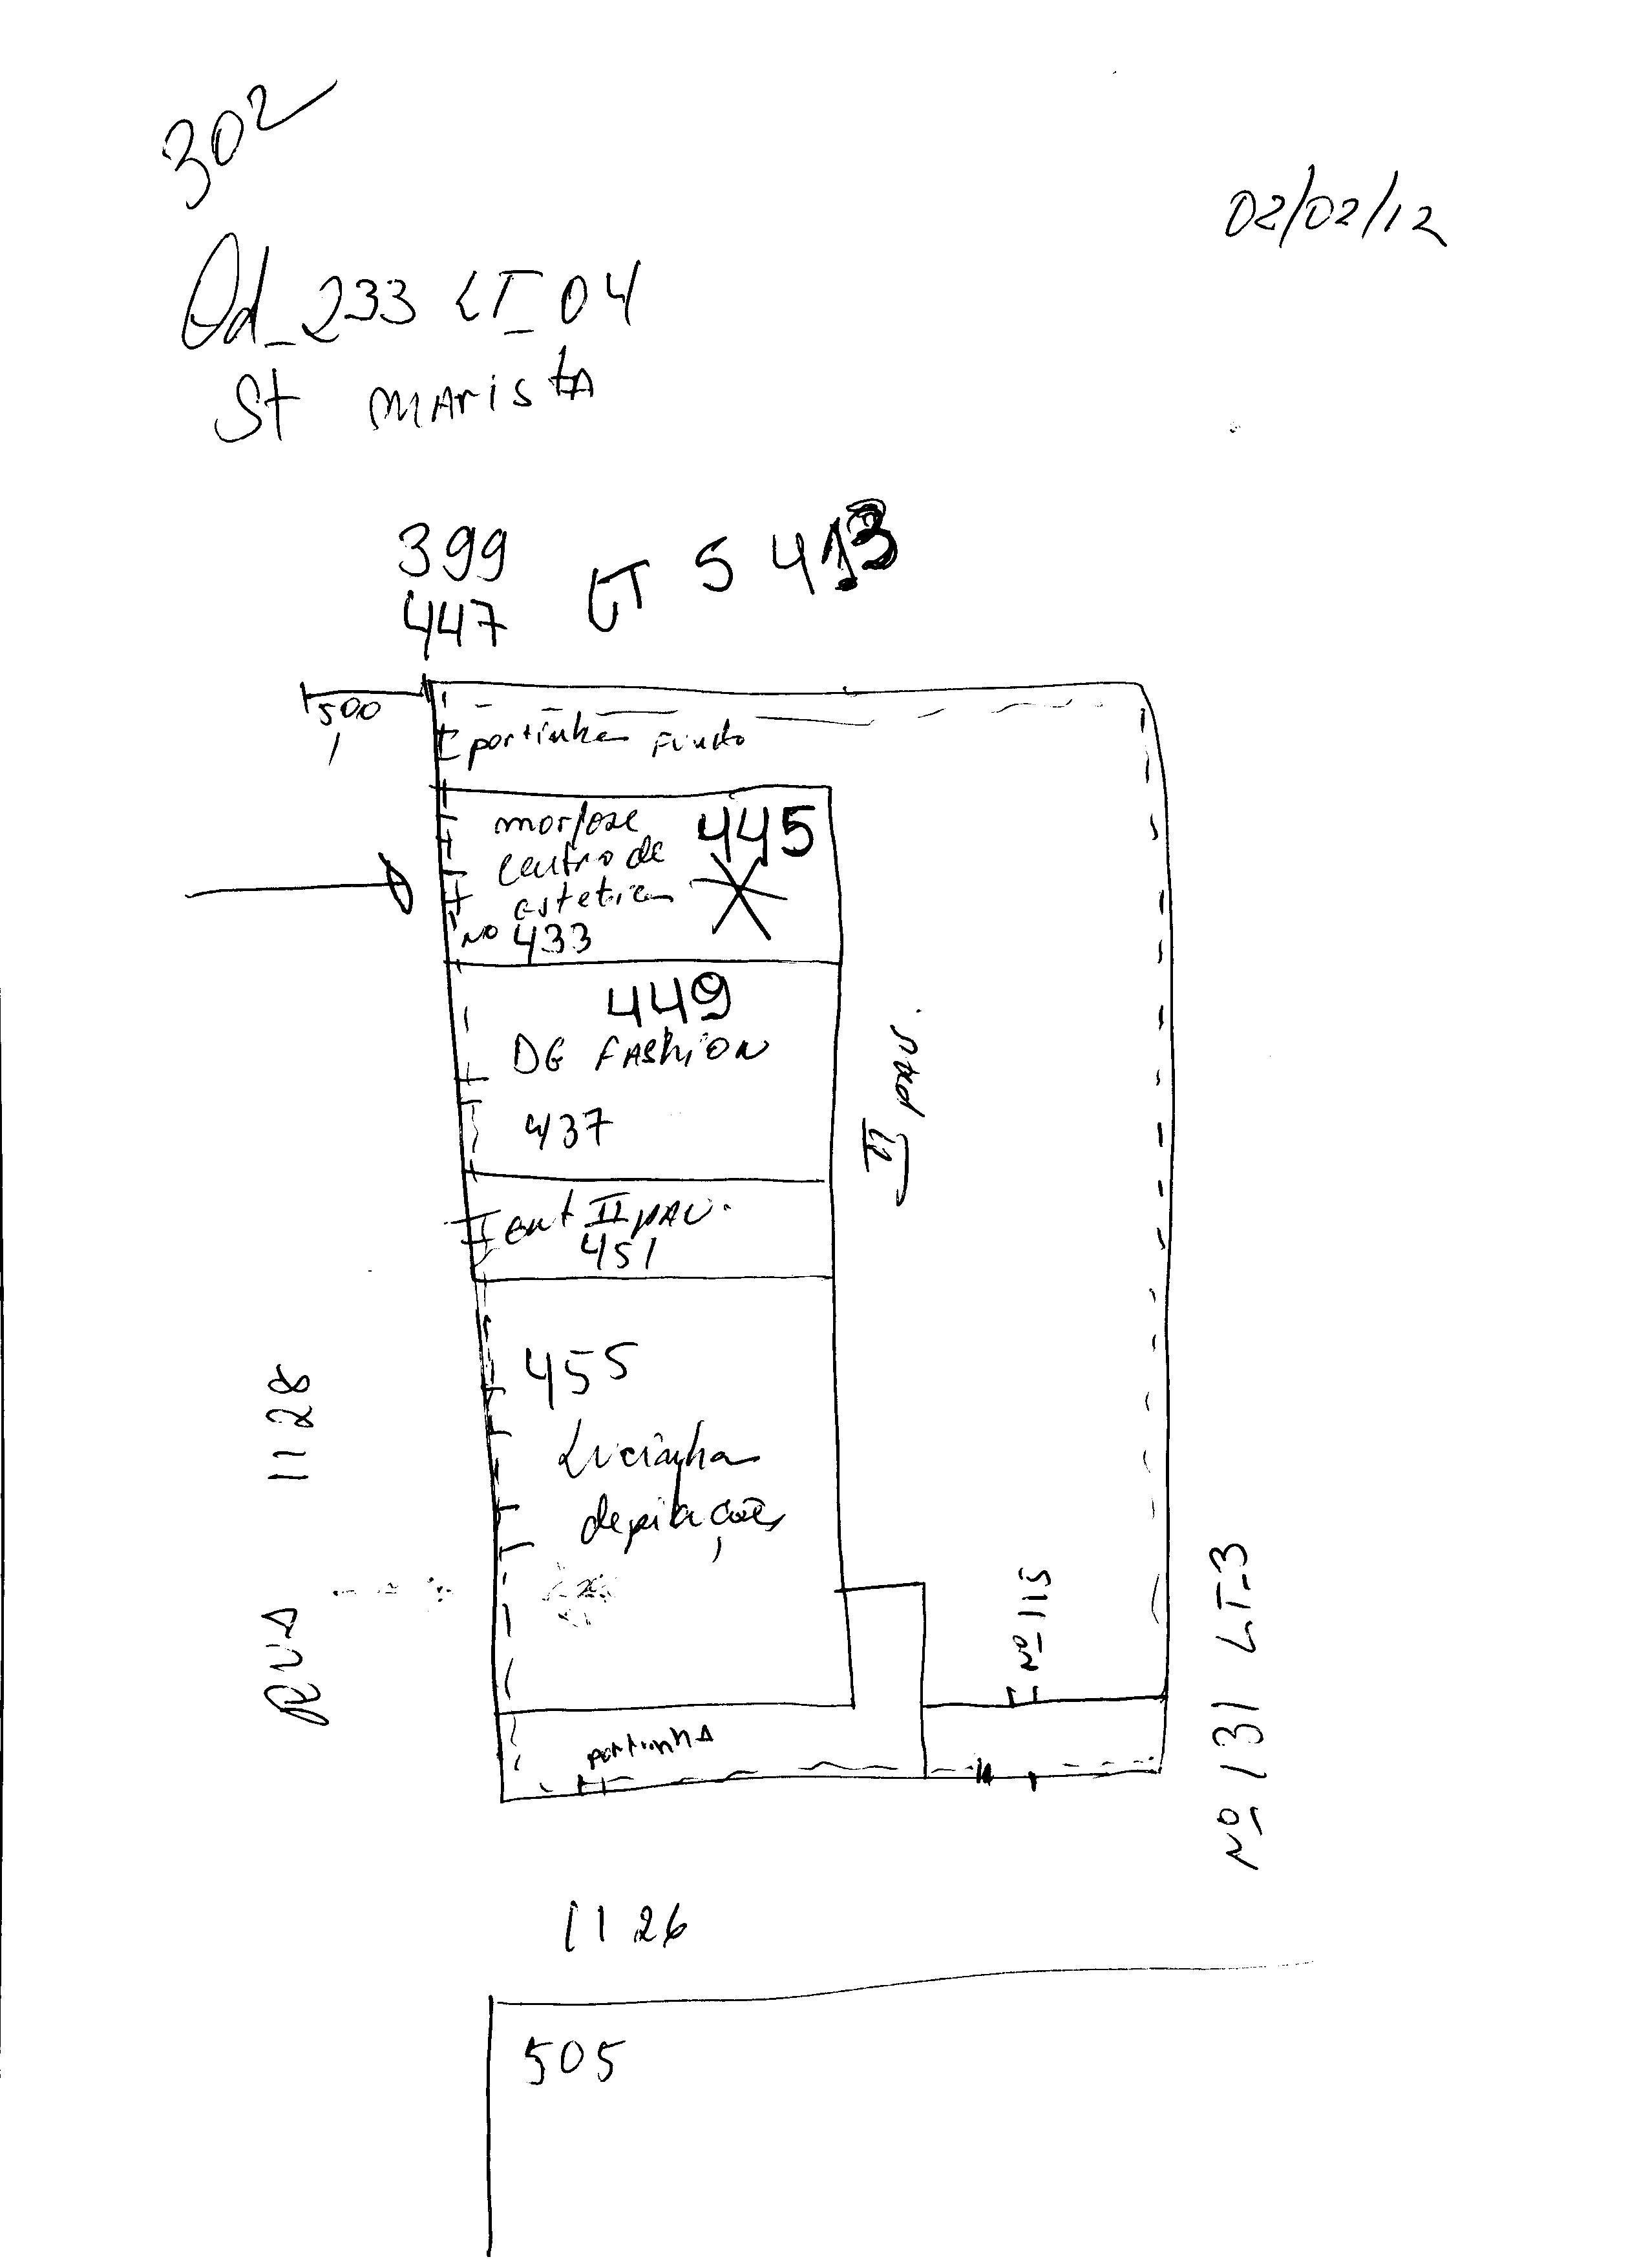 302
02/02/12
Qd_233 LT_04
St Marista
399
447
LT 5 413
500
portinha Fundo
morfose 445
centro de
estetica
No 433
449
DG FASHION
437
II PAV.
ent II PAV.
451
455
Lucianha
depilações
RUA 1128
Nº 115
portinhA
Nº 131 LT-3
1126
505